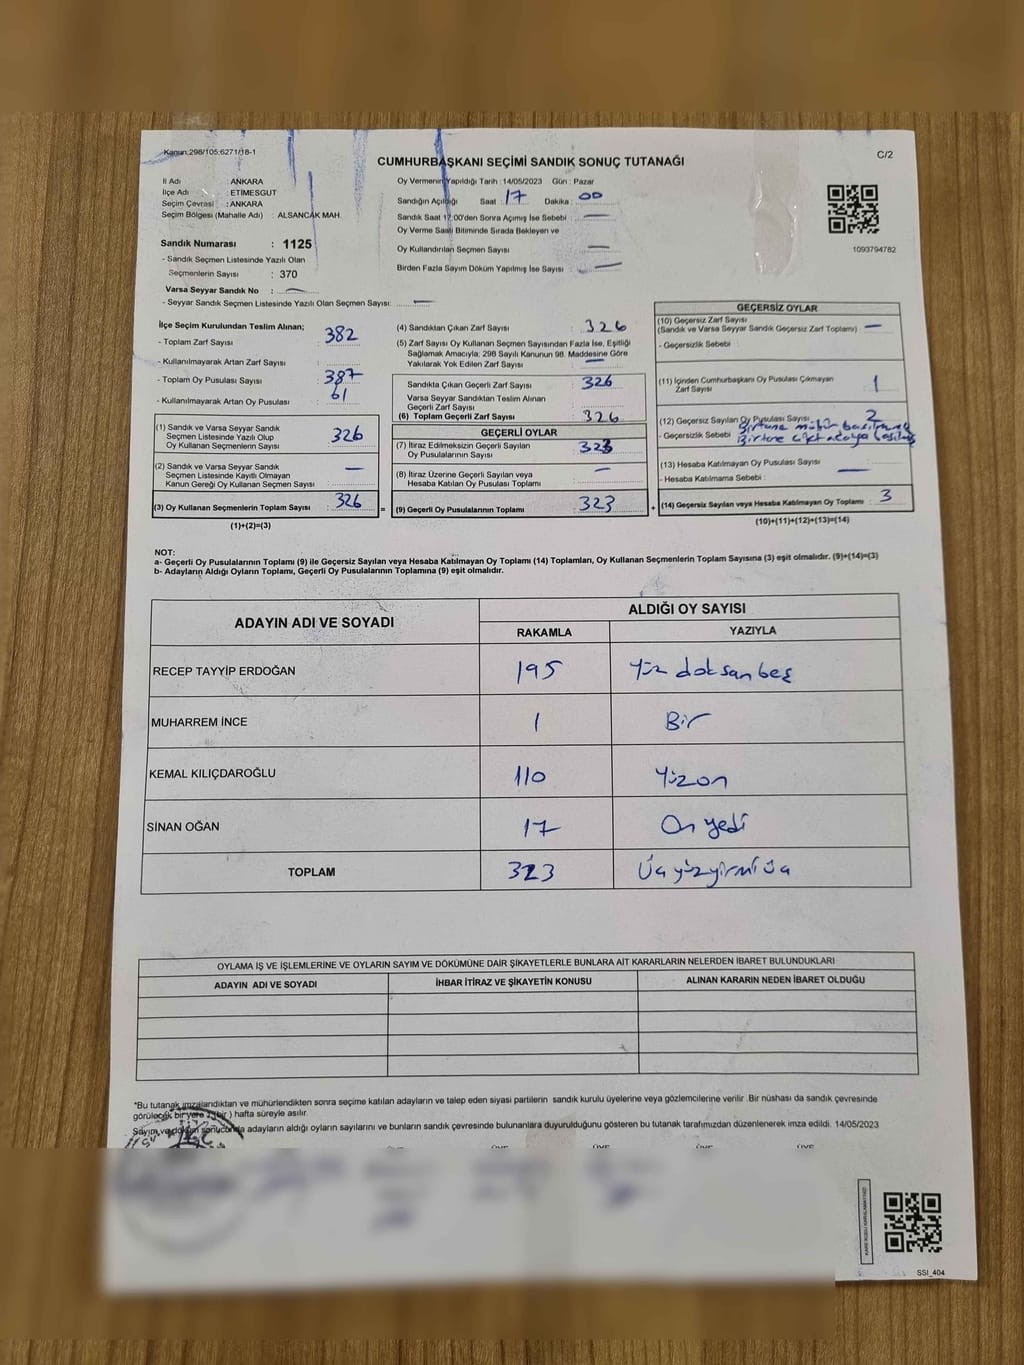 Kanun:298/105,6271/18-1
CUMHURBAŞKANI SEÇİMİ SANDIK SONUÇ TUTANAĞI
C/2
İl Adı : ANKARA
İlçe Adı : ETİMESGUT
Seçim Çevresi : ANKARA
Seçim Bölgesi (Mahalle Adı) : ALSANCAK MAH.
Sandık Numarası : 1125
- Sandık Seçmen Listesinde Yazılı Olan
Seçmenlerin Sayısı : 370
Varsa Seyyar Sandık No : —
- Seyyar Sandık Seçmen Listesinde Yazılı Olan Seçmen Sayısı: —
Oy Vermenin Yapıldığı Tarih :14/05/2023 Gün : Pazar
Sandığın Açıldığı Saat : 17 Dakika : 00
Sandık Saat 17:00'den Sonra Açımış İse Sebebi : —
Oy Verme Saati Bitiminde Sırada Bekleyen ve
Oy Kullandırılan Seçmen Sayısı : —
Birden Fazla Sayım Döküm Yapılmış İse Sayısı : —
1093794782
İlçe Seçim Kurulundan Teslim Alınan;
- Toplam Zarf Sayısı : 382
- Kullanılmayarak Artan Zarf Sayısı :
- Toplam Oy Pusulası Sayısı : 387
- Kullanılmayarak Artan Oy Pusulası : 61
(1) Sandık ve Varsa Seyyar Sandık
Seçmen Listesinde Yazılı Olup
Oy Kullanan Seçmenlerin Sayısı : 326
(2) Sandık ve Varsa Seyyar Sandık
Seçmen Listesinde Kayıtlı Olmayan
Kanun Gereği Oy Kullanan Seçmen Sayısı : —
(3) Oy Kullanan Seçmenlerin Toplam Sayısı : 326
(1)+(2)=(3)
(4) Sandıktan Çıkan Zarf Sayısı : 326
(5) Zarf Sayısı Oy Kullanan Seçmen Sayısından Fazla İse, Eşitliği
Sağlamak Amacıyla; 298 Sayılı Kanunun 98. Maddesine Göre
Yakılarak Yok Edilen Zarf Sayısı : —
Sandıkta Çıkan Geçerli Zarf Sayısı : 326
Varsa Seyyar Sandıktan Teslim Alınan
Geçerli Zarf Sayısı :
(6) Toplam Geçerli Zarf Sayısı : 326
GEÇERLİ OYLAR
(7) İtiraz Edilmeksizin Geçerli Sayılan
Oy Pusulalarının Sayısı : 323
(8) İtiraz Üzerine Geçerli Sayılan veya
Hesaba Katılan Oy Pusulası Toplamı : —
= (9) Geçerli Oy Pusulalarının Toplamı : 323
GEÇERSİZ OYLAR
(10) Geçersiz Zarf Sayısı
(Sandık ve Varsa Seyyar Sandık Geçersiz Zarf Toplamı) : —
- Geçersizlik Sebebi :
(11) İçinden Cumhurbaşkanı Oy Pusulası Çıkmayan
Zarf Sayısı : 1
(12) Geçersiz Sayılan Oy Pusulası Sayısı : 2
- Geçersizlik Sebebi : Birtane mühür basılmamış
Birtane çift adaya basılmış
(13) Hesaba Katılmayan Oy Pusulası Sayısı : —
- Hesaba Katılmama Sebebi :
+ (14) Geçersiz Sayılan veya Hesaba Katılmayan Oy Toplamı : 3
(10)+(11)+(12)+(13)=(14)
NOT:
a- Geçerli Oy Pusulalarının Toplamı (9) ile Geçersiz Sayılan veya Hesaba Katılmayan Oy Toplamı (14) Toplamları, Oy Kullanan Seçmenlerin Toplam Sayısına (3) eşit olmalıdır. (9)+(14)=(3)
b- Adayların Aldığı Oyların Toplamı, Geçerli Oy Pusulalarının Toplamına (9) eşit olmalıdır.
ADAYIN ADI VE SOYADI ALDIĞI OY SAYISI
RAKAMLA YAZIYLA
RECEP TAYYİP ERDOĞAN 195 Yüz doksan beş
MUHARREM İNCE 1 Bir
KEMAL KILIÇDAROĞLU 110 Yüzon
SİNAN OĞAN 17 On yedi
TOPLAM 323 Üçyüzyirmiüç
OYLAMA İŞ VE İŞLEMLERİNE VE OYLARIN SAYIM VE DÖKÜMÜNE DAİR ŞİKAYETLERLE BUNLARA AİT KARARLARIN NELERDEN İBARET BULUNDUKLARI
ADAYIN ADI VE SOYADI İHBAR İTİRAZ VE ŞİKAYETİN KONUSU ALINAN KARARIN NEDEN İBARET OLDUĞU
*Bu tutanak imzalandıktan ve mühürlendikten sonra seçime katılan adayların ve talep eden siyasi partilerin sandık kurulu üyelerine veya gözlemcilerine verilir .Bir nüshası da sandık çevresinde
görülecek bir yere 1 (bir ) hafta süreyle asılır.
Sayım ve döküm sonucunda adayların aldığı oyların sayılarını ve bunların sandık çevresinde bulunanlara duyurulduğunu gösteren bu tutanak tarafımızdan düzenlenerek imza edildi. 14/05/2023
SSI_404